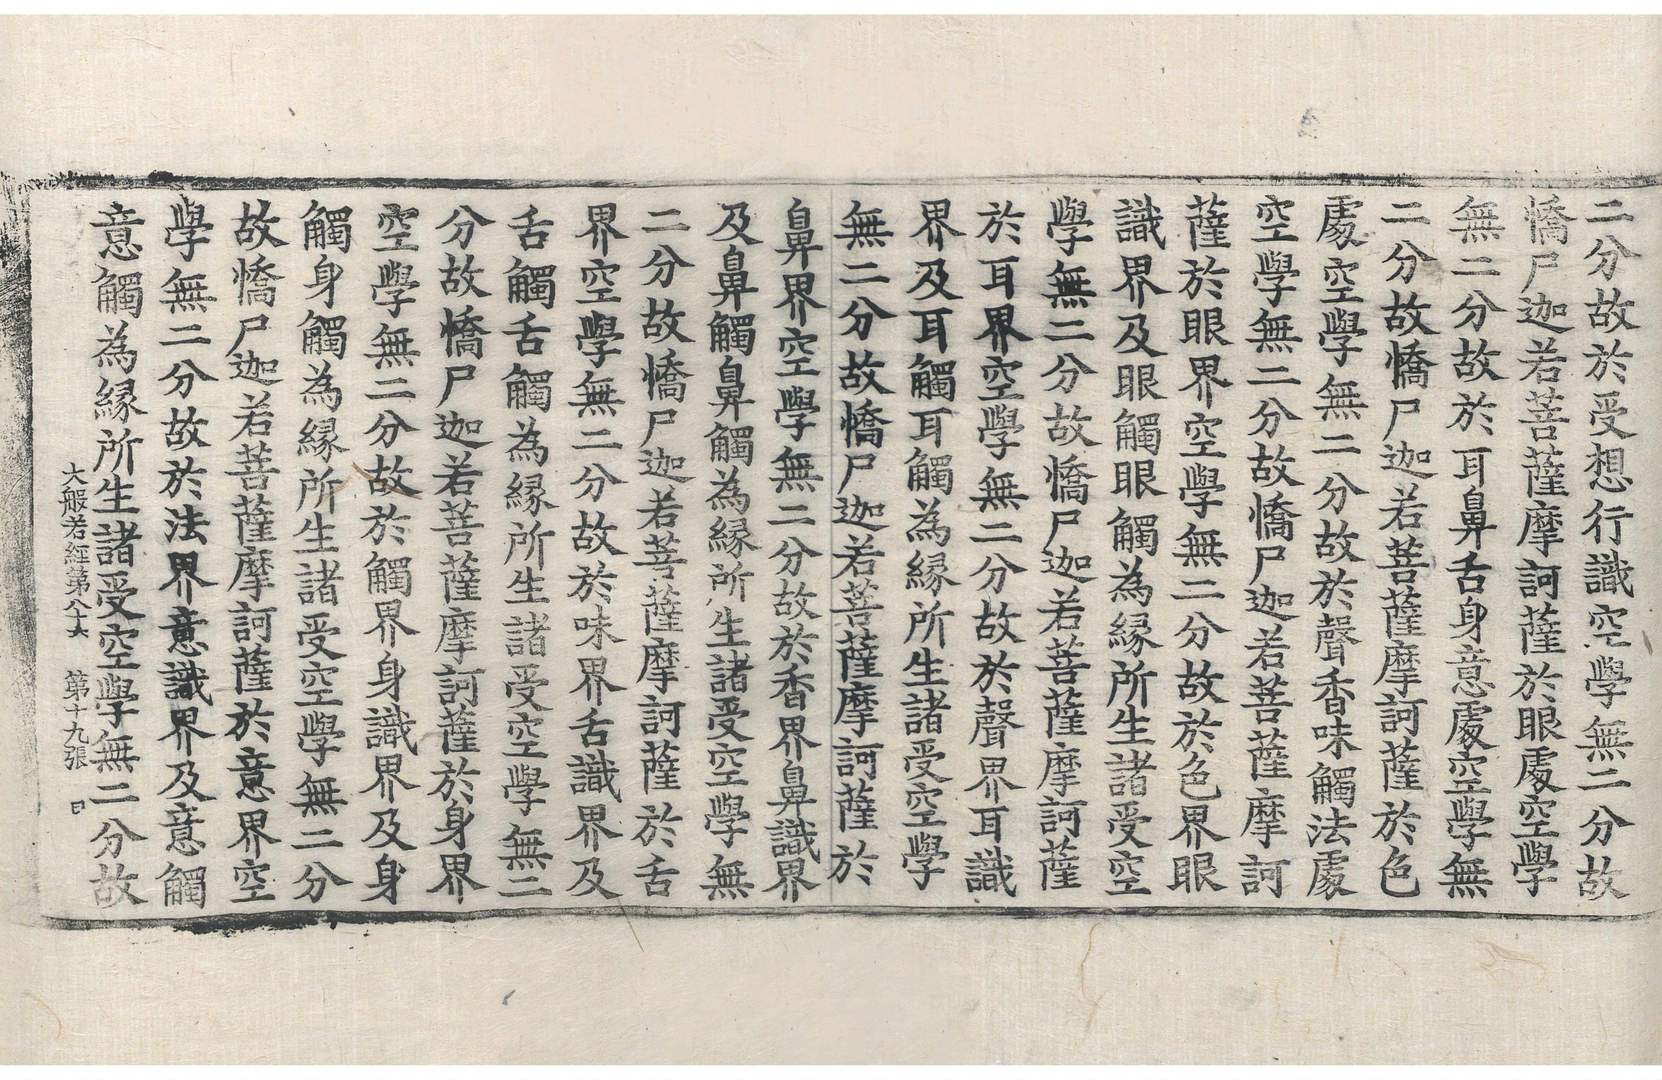 二分故於受想行識空學無二分故
憍尸迦若菩薩摩訶薩於眼處空學
無二分故於耳鼻舌身意處空學無
二分故憍尸迦若菩薩摩訶薩於色
處空學無二分故於聲香味觸法處
空學無二分故憍尸迦若菩薩摩訶
薩於眼界空學無二分故於色界眼
識界及眼觸眼觸為緣所生諸受空
學無二分故憍尸迦若菩薩摩訶薩
於耳界空學無二分故於聲界耳識
界及耳觸耳觸為緣所生諸受空學
無二分故憍尸迦若菩薩摩訶薩於
鼻界空學無二分故於香界鼻識界
及鼻觸鼻觸為緣所生諸受空學無
二分故憍尸迦若菩薩摩訶薩於舌
界空學無二分故於味界舌識界及
舌觸舌觸為緣所生諸受空學無二
分故憍尸迦若菩薩摩訶薩於身界
空學無二分故於觸界身識界及身
觸身觸為緣所生諸受空學無二分
故憍尸迦若菩薩摩訶薩於意界空
學無二分故於法界意識界及意觸
意觸為緣所生諸受空學無二分故
大般若經第八十六 第十九張